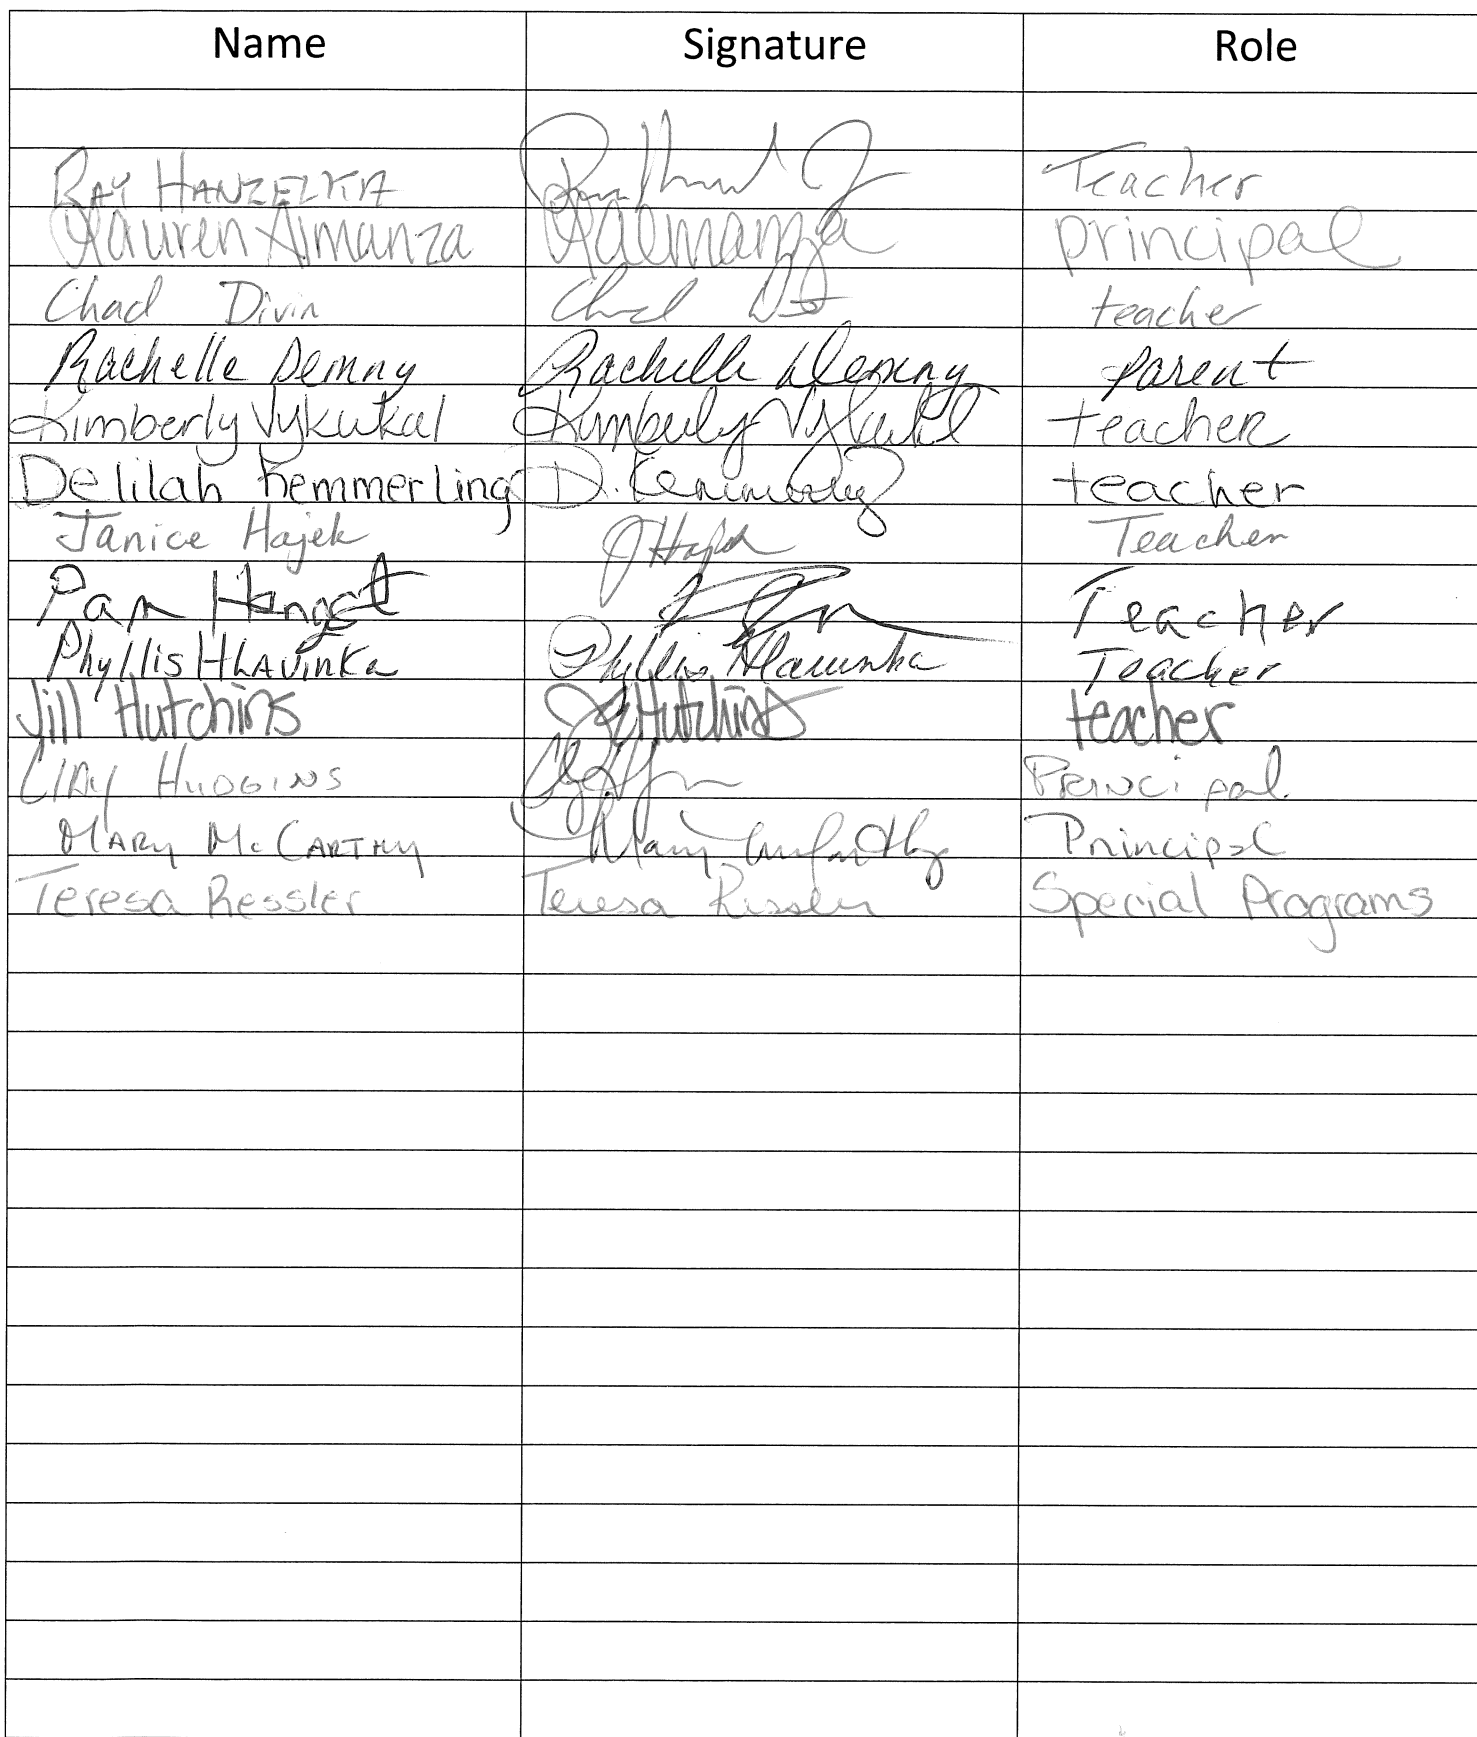 Name Signature Role
RAY HANZELKA Teacher
Lauren Almanza Lalmanza principal
Chad Divin Chad teacher
Rachelle Demny Rachelle Demny parent
Kimberly Vykukal Kimberly Vykukal teacher
Delilah Kemmerling D. Kemmerling teacher
Janice Hajek J Hajek Teacher
Pam Hengst Teacher
Phyllis Hlavinka Phyllis Hlavinka Teacher
Jill Hutchins Jill Hutchins teacher
Clay Hudgins Principal
Mary McCarthy Mary McCarthy Principal
Teresa Ressler Teresa Ressler Special Programs